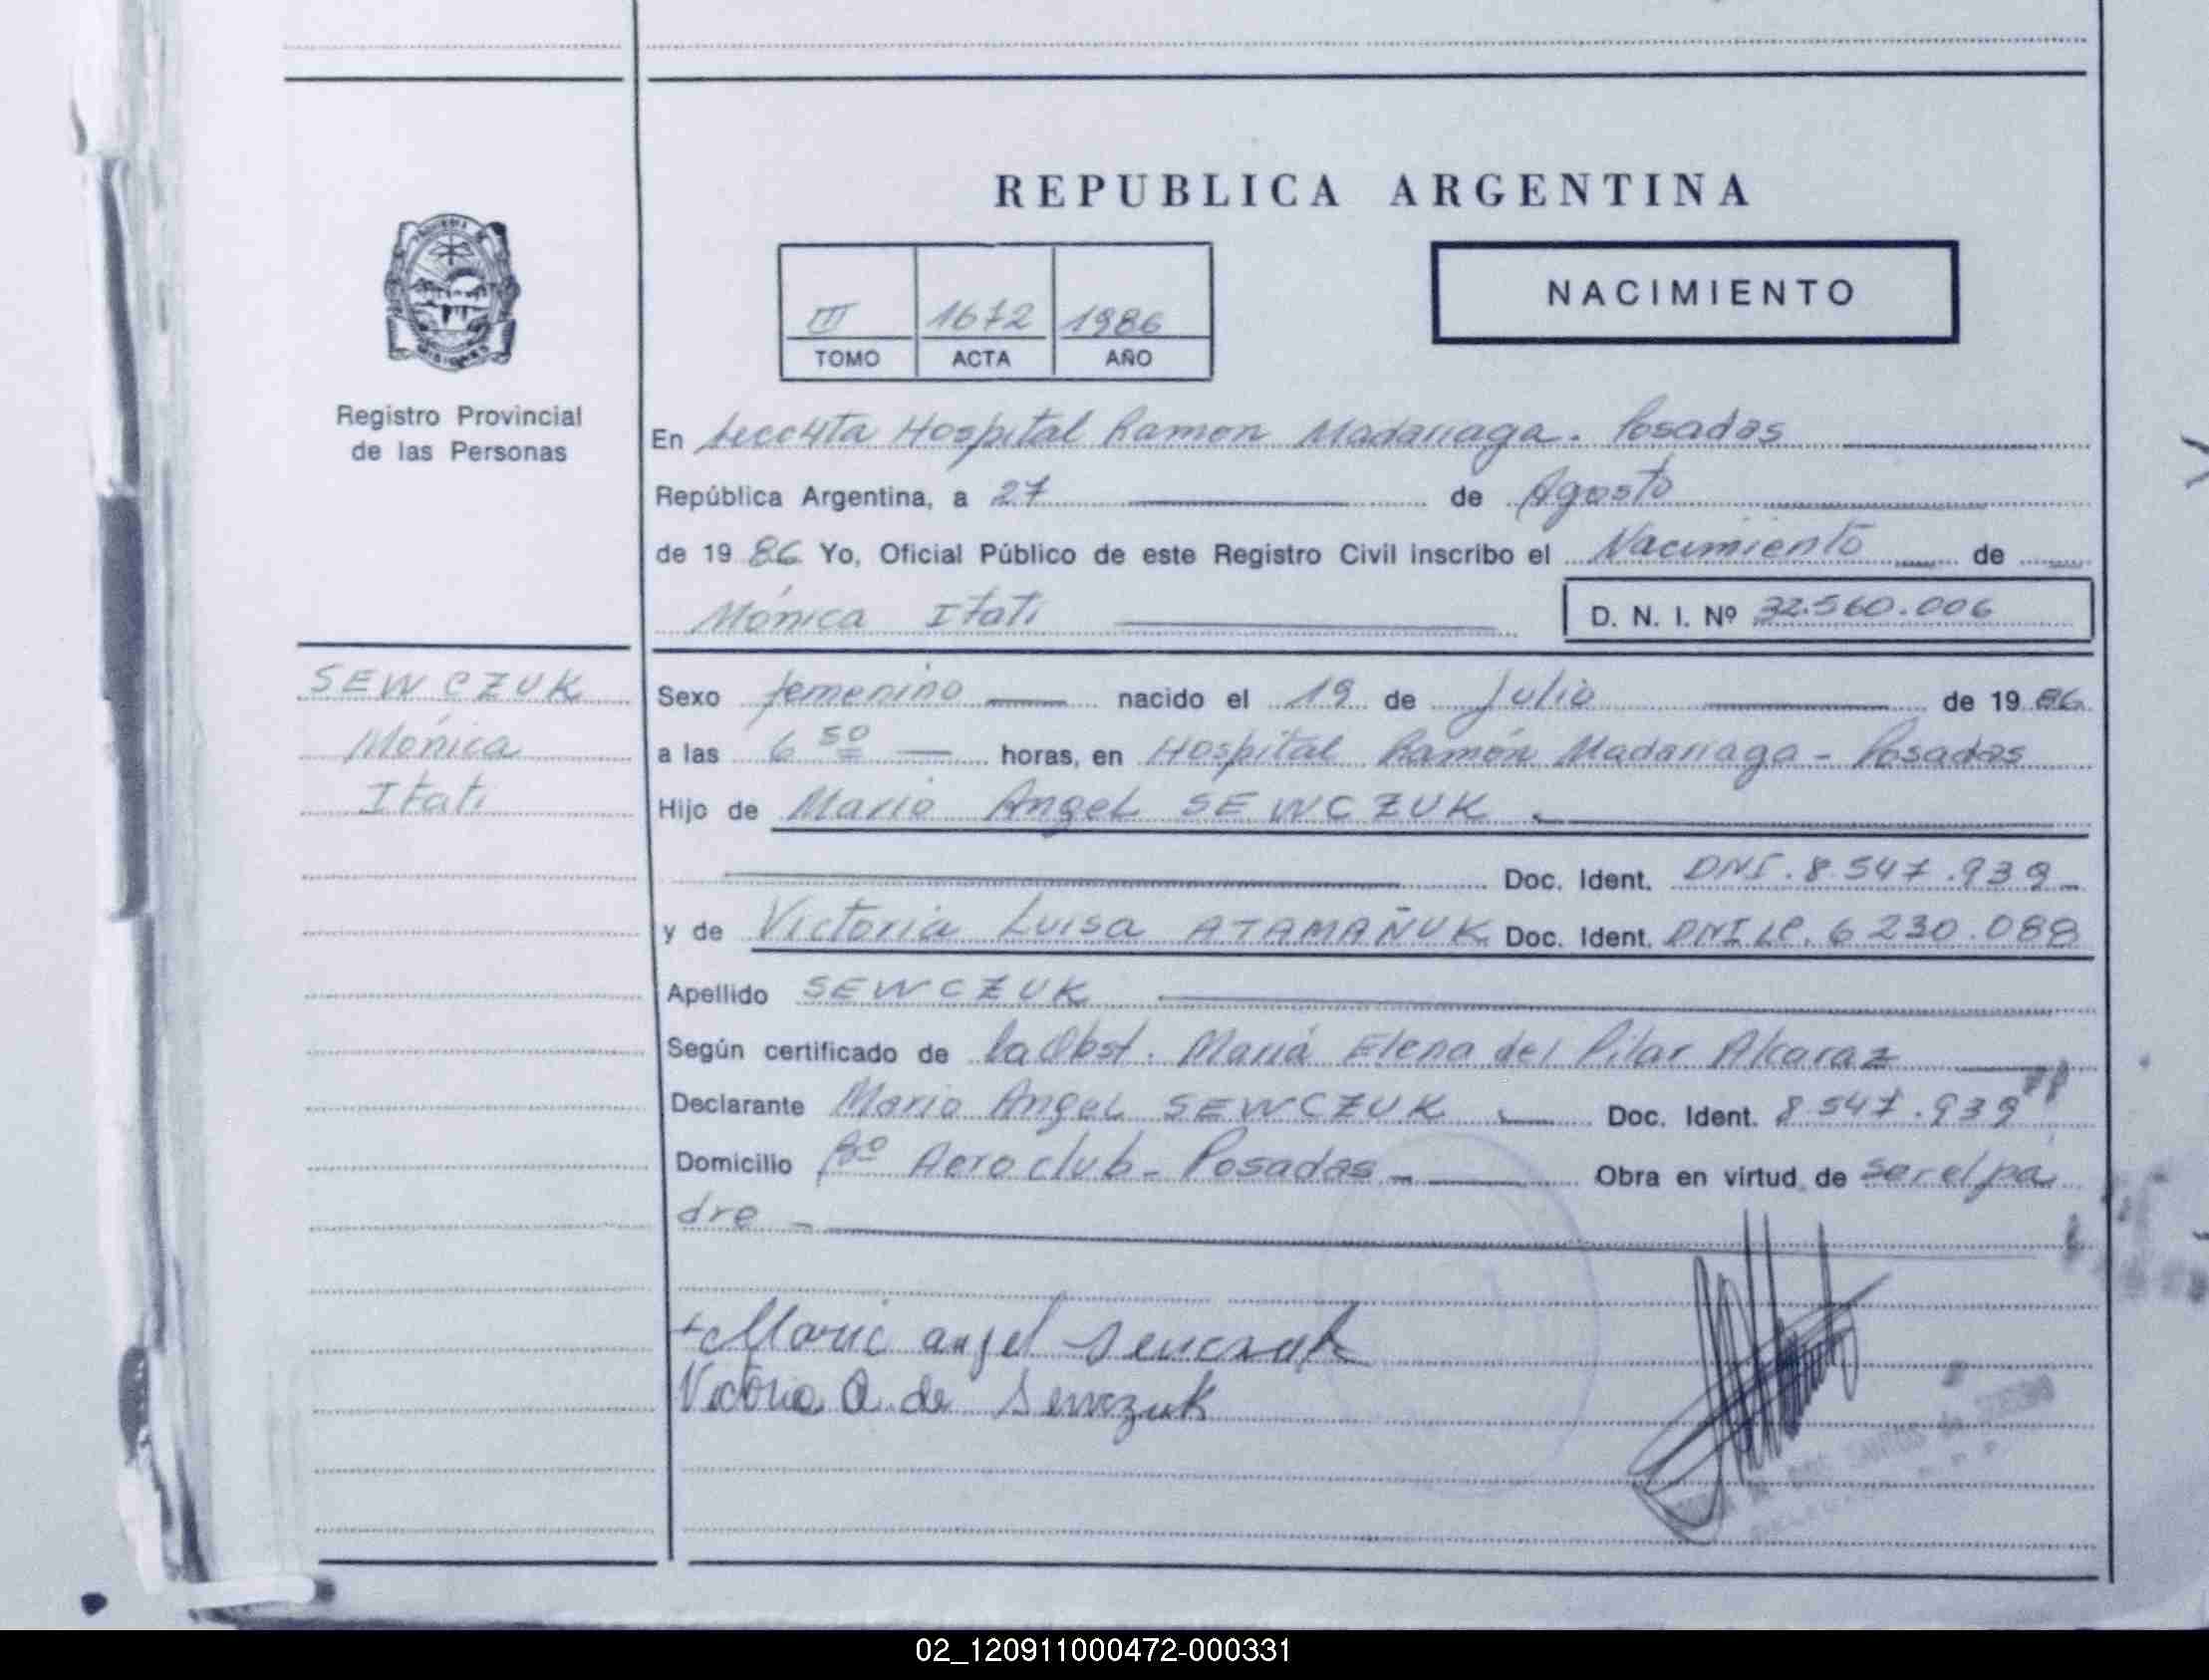 REPUBLICA ARGENTINA
NACIMIENTO
III 1672 1986
TOMO ACTA AÑO
MISIONES
Registro Provincial
de las Personas
En Secc 4ta Hospital Ramon Madariaga. Posadas
República Argentina, a 27 de Agosto
de 1986 Yo, Oficial Público de este Registro Civil inscribo el Nacimiento de
Mónica Itati D. N. I. Nº 32.560.006
SEWCZUK
Mónica
Itati
Sexo femenino nacido el 19 de Julio de 1986
a las 6 50 horas, en Hospital Ramón Madariaga - Posadas
Hijo de Mario Angel SEWCZUK
Doc. Ident. DNI. 8.547.939
y de Victoria Luisa ATAMAÑUK Doc. Ident. DNI LC. 6 230.088
Apellido SEWCZUK
Según certificado de la Obst. María Elena del Pilar Alcaraz
Declarante Mario Angel SEWCZUK Doc. Ident. 8.547.939
Domicilio Bº Aeroclub - Posadas - Obra en virtud de ser el pa
dre -
+ Mario angel Sewczuk
Victoria A. de Sewczuk
02_120911000472-000331